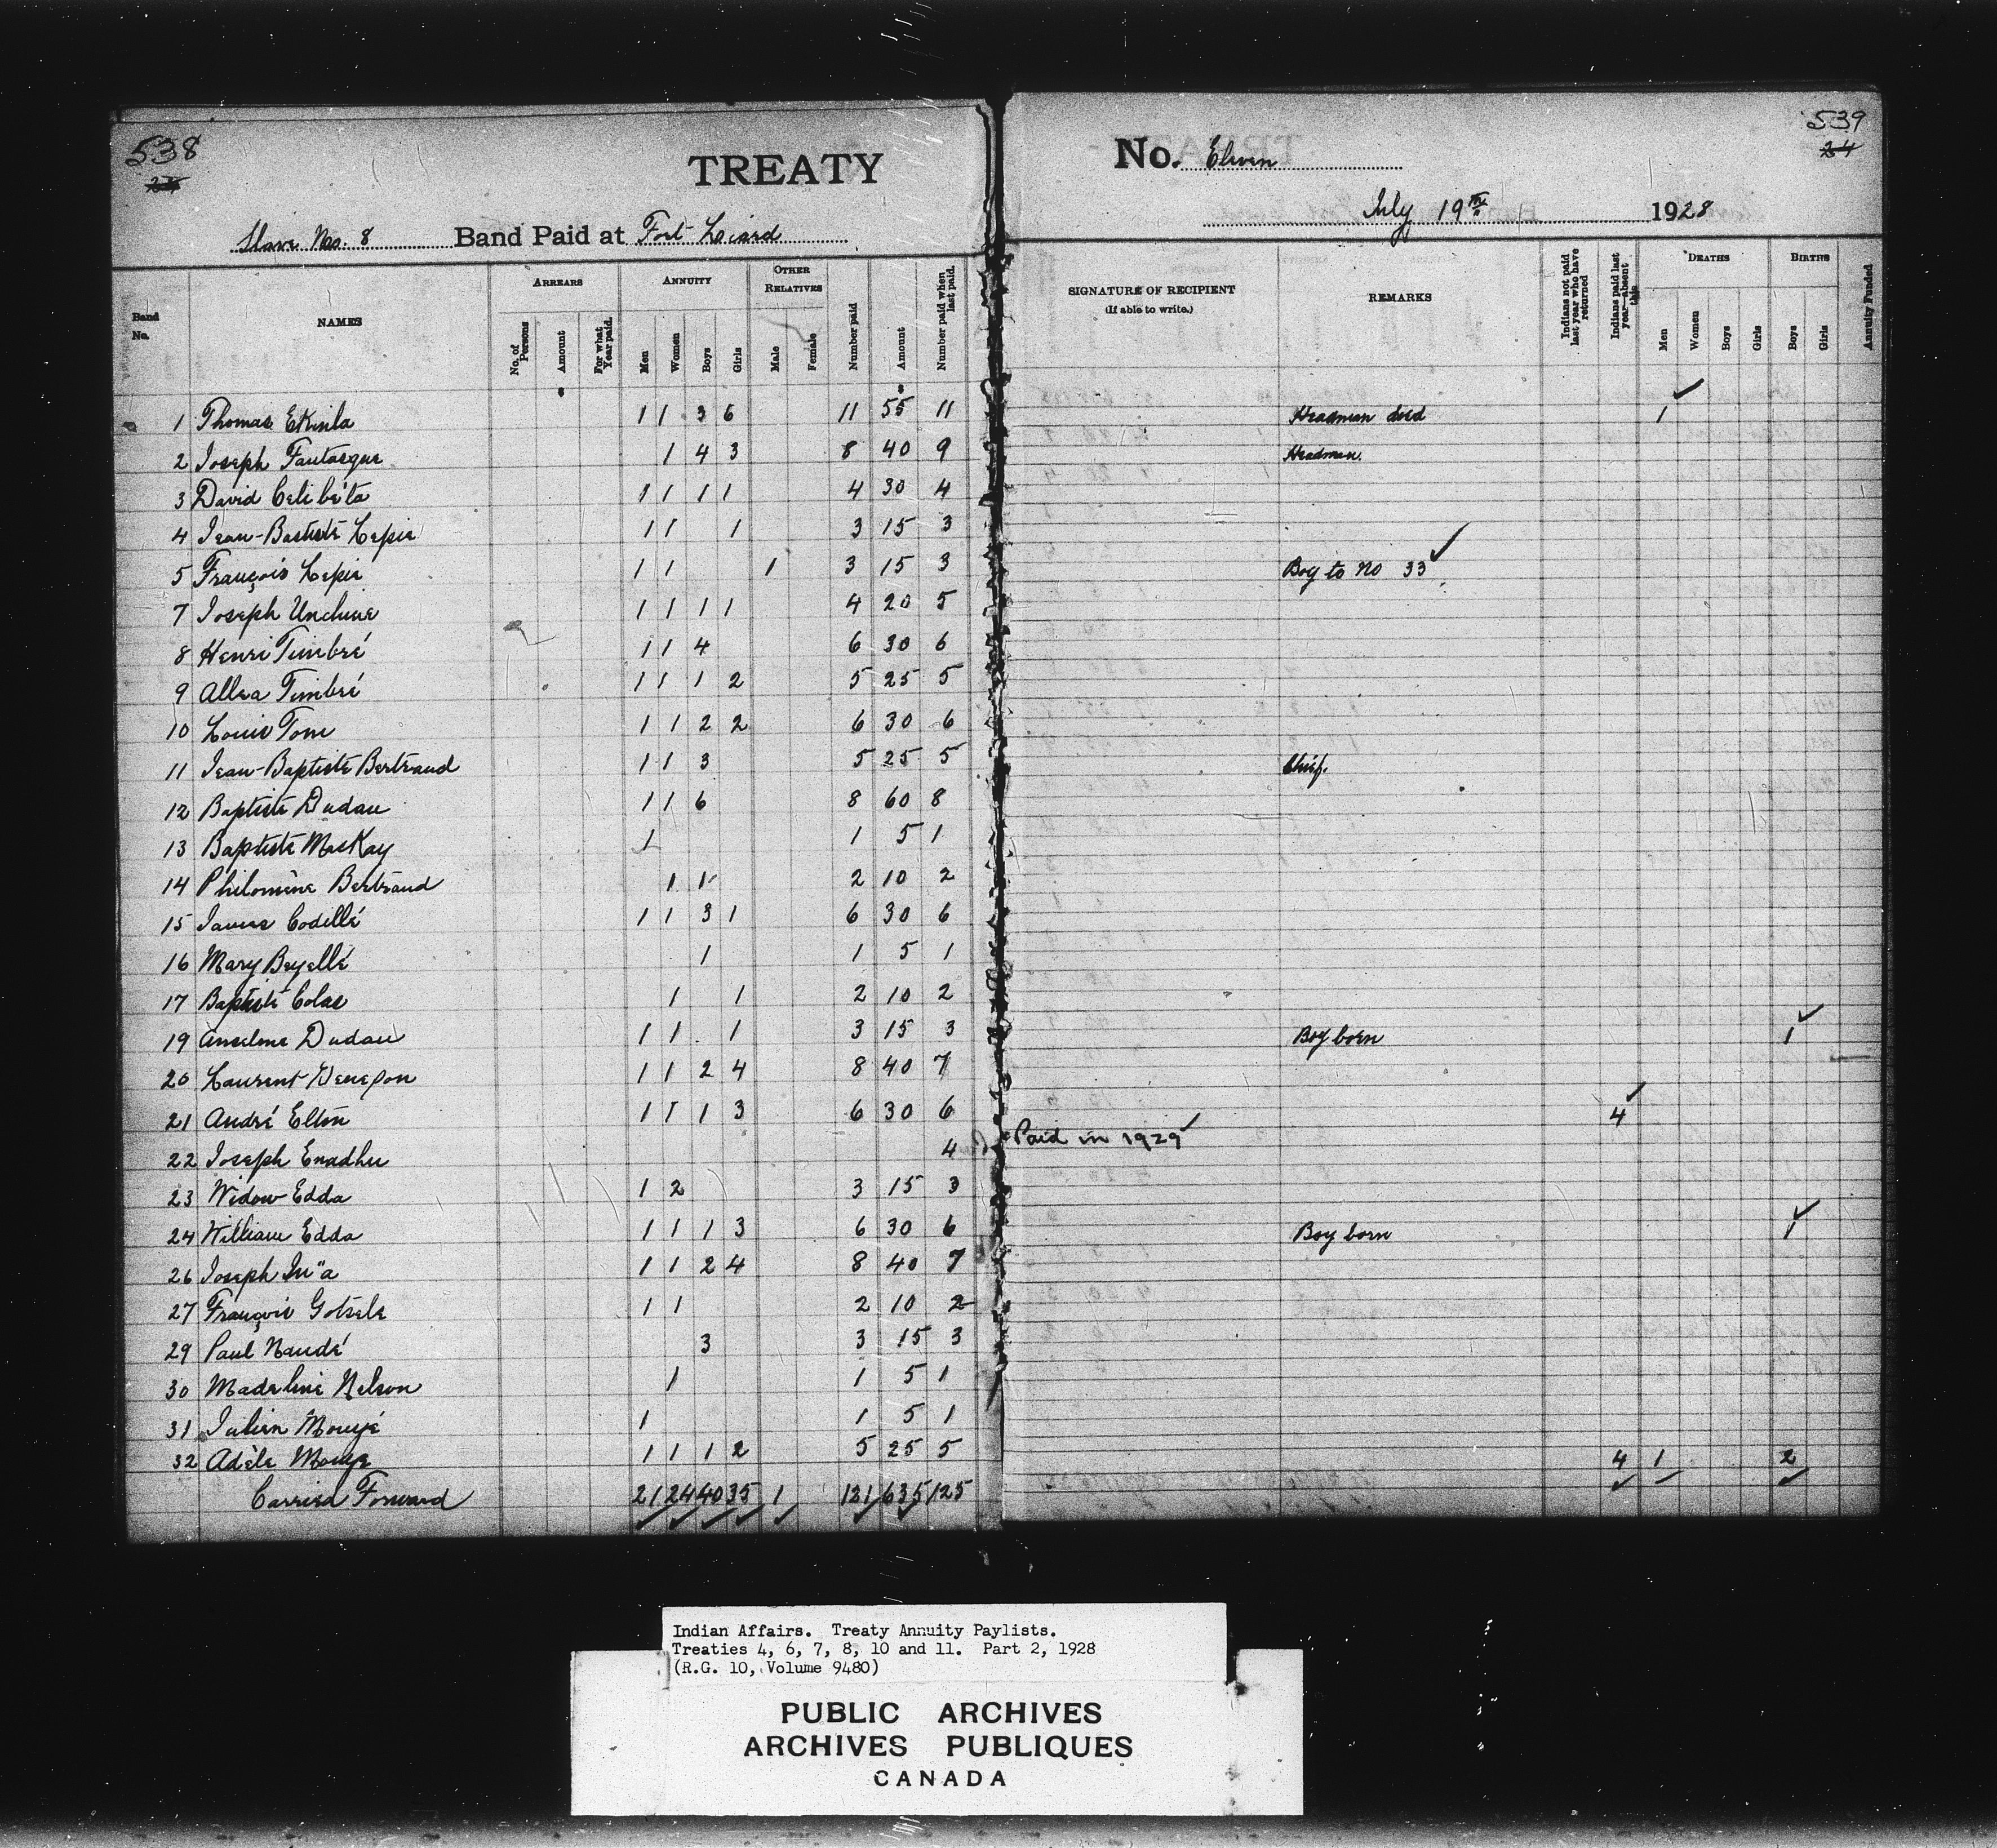 538
24
TREATY
Slave No. 8 Band Paid at Fort Liard
Band No.
NAMES
ARREARS
No. of Persons
Amount
For what Year paid.
ANNUITY
Men
Women
Boys
Girls
OTHER RELATIVES
Male
Female
Number paid
Amount
Number paid when last paid.
1 Thomas Ekinla 1 1 3 6 11 55 11
2 Joseph Fantasque 1 4 3 8 40 9
3 David Celibéta 1 1 1 1 4 30 4
4 Jean-Baptiste Lepie 1 1 1 3 15 3
5 François Lepie 1 1 1 3 15 3
7 Joseph 1 1 1 1 4 20 5
8 Henri Timbré 1 1 4 6 30 6
9 Allea Timbré 1 1 1 2 5 25 5
10 Louis Tom 1 1 2 2 6 30 6
11 Jean-Baptiste Bertrand 1 1 3 5 25 5
12 Baptiste Dudau 1 1 6 8 60 8
13 Baptiste MacKay 1 1 5 1
14 Philomène Bertrand 1 1 2 10 2
15 James Codillé 1 1 3 1 6 30 6
16 Mary Beyellé 1 1 5 1
17 Baptiste Colas 1 1 2 10 2
19 Anselme Dudau 1 1 1 3 15 3
20 Laurent 1 1 2 4 8 40 7
21 André Elton 1 1 1 3 6 30 6
22 Joseph Enadhu 4
23 Widow Edda 1 2 3 15 3
24 William Edda 1 1 1 3 6 30 6
26 Joseph 1 1 2 4 8 40 7
27 François Gotsele 1 1 2 10 2
29 Paul Naudé 3 3 15 3
30 Madeline Nelson 1 1 5 1
31 Julien Mouyé 1 1 5 1
32 Adèle Mouye 1 1 1 2 5 25 5
Carried Forward 21 24 40 35 1 121 635 125
539
24
No. Eleven
July 19th 1928
SIGNATURE OF RECIPIENT
(If able to write.)
REMARKS
Indians not paid last year who have returned
Indians paid last year—absent this
DEATHS
Men
Women
Boys
Girls
BIRTHS
Boys
Girls
Annuity Funded
Headman died 1
Headman.
Boy to No 33
Chief.
Boy born 1
4
Paid in 1929
Boy born 1
4 1 2
Indian Affairs. Treaty Annuity Paylists.
Treaties 4, 6, 7, 8, 10 and 11. Part 2, 1928
(R.G. 10, Volume 9480)
PUBLIC ARCHIVES
ARCHIVES PUBLIQUES
CANADA